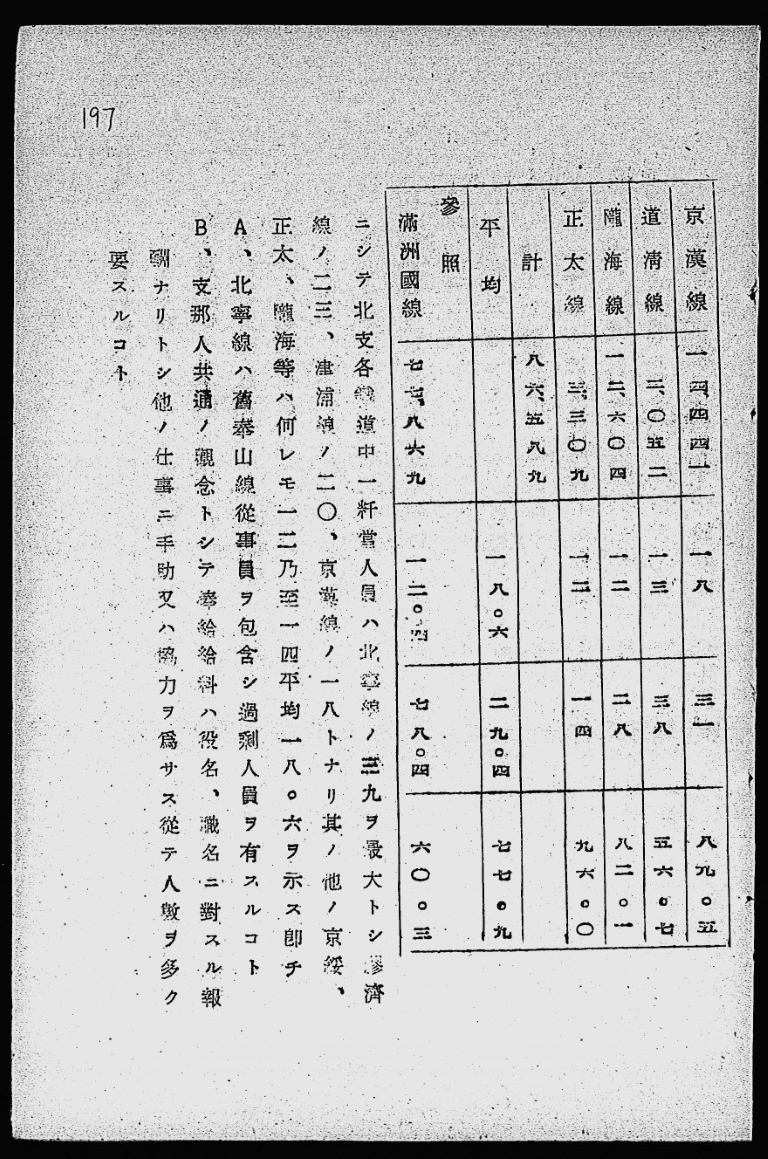 197
京漢線 一四、四四一 一八 三一 八九。五
道淸線 二、〇五二 一三 三八 五六。七
隴海線 一二、六〇四 一二 二八 八二。一
正太線 三、三〇九 一二 一四 九六。〇
計 八六、五八九
平均 一八。六 二九。四 七七。九
參照
滿洲國線 七七、八六九 一二。四 七八。四 六〇。三
ニシテ北支各鐵道中一粁當人員ハ北寧線ノ三九ヲ最大トシ膠濟
線ノ二三、津浦線ノ二〇、京漢線ノ一八トナリ其ノ他ノ京綏、
正太、隴海等ハ何レモ一二乃至一四平均一八。六ヲ示ス卽チ
A、北寧線ハ舊奉山線從事員ヲ包含シ過剩人員ヲ有スルコト
B、支那人共通ノ觀念トシテ奉給給料ハ役名、職名ニ對スル報
酬ナリトシ他ノ仕事ニ手助又ハ協力ヲ爲サス從テ人數ヲ多ク
要スルコト